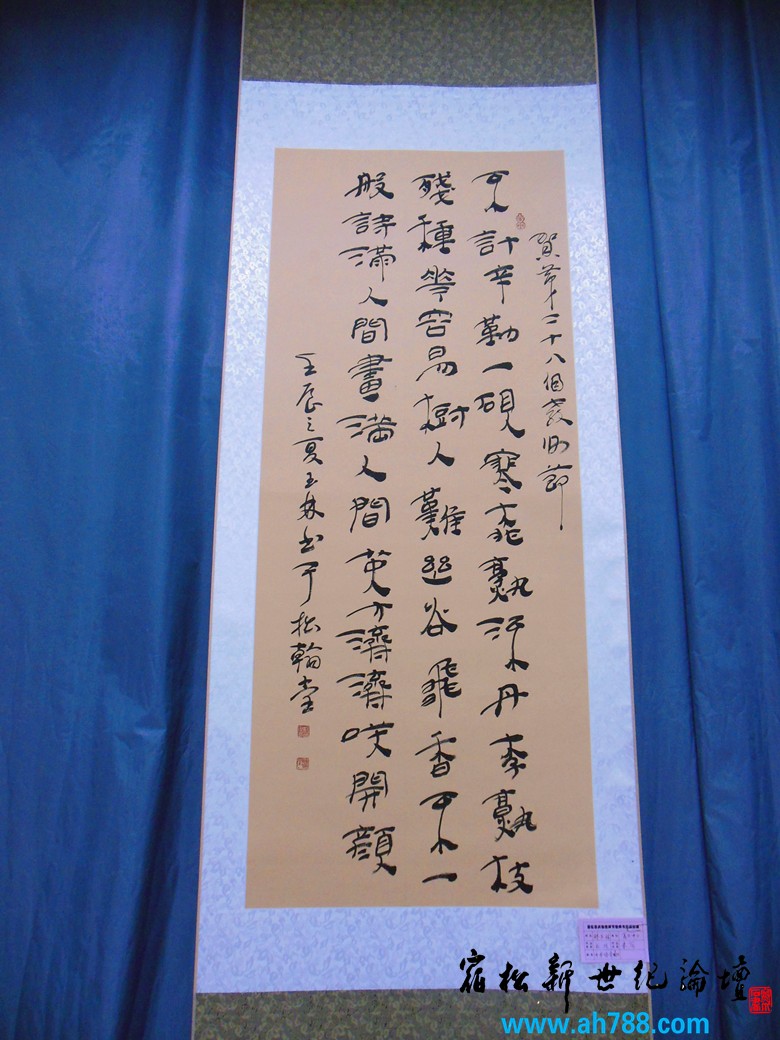 賀第二十八個教師節
不計辛勤一硯寒桃熟流丹李熟枝
殘種花容易樹人難幽谷飛香不一
般詩滿人間畫滿人間英才濟濟笑開顏
壬辰之夏玉林书于松翰堂
宿松新世纪論壇
www.ah788.com